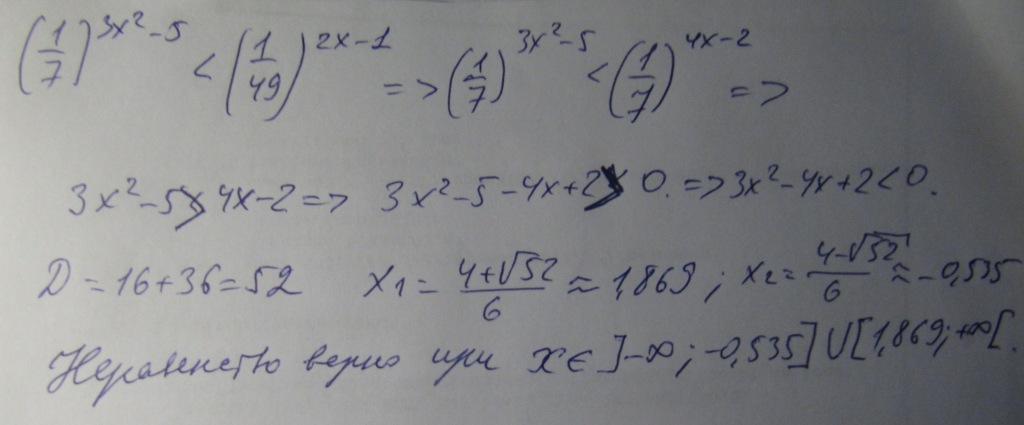 (1/7)^(3x²-5) < (1/49)^(2x-1) => (1/7)^(3x²-5) < (1/7)^(4x-2) =>
3x²-5 > 4x-2 => 3x²-5-4x+2 > 0. => 3x²-4x+2 < 0.
D = 16+36 = 52 x₁ = (4+√52)/6 ≈ 1,869; x₂ = (4-√52)/6 ≈ -0,535
Неравенство верно при x ∈ ]-∞; -0,535] ∪ [1,869; +∞[.